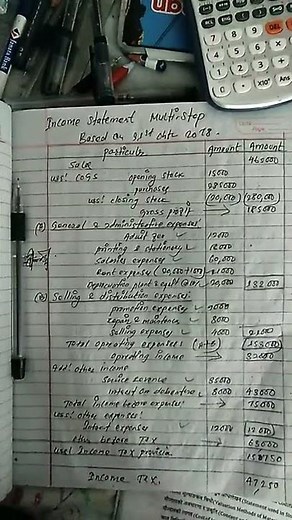 Income Statement Multi-Step
Based on 31st 2018.
particulars Amount Amount
Sales 465000
Less: COGS opening stock 15000
purchases 285000
Less: closing stock (20,000) (280,000)
Gross profit → 185000
(A) General & administrative expenses:
Audit fee 12000
printing & stationery 18000
Salaries expenses 60,000
Rent expenses (20,000+1000) 21000
Depreciation plant & 20,000 132000
(B) Selling & distribution expenses:
promotion expenses
repair & maintenance 8000
Selling expenses 21000
Total operating expenses (A+B) (153000)
operating income → 32000
Add: other income
Service revenue 35000
Interest on debenture 8000 43000
Total Income before expenses → 75000
Less: other expenses:
Interest expenses 12000 12000
before Tax → 63000
Less: Income Tax provision 15750
Income Tax. 47250